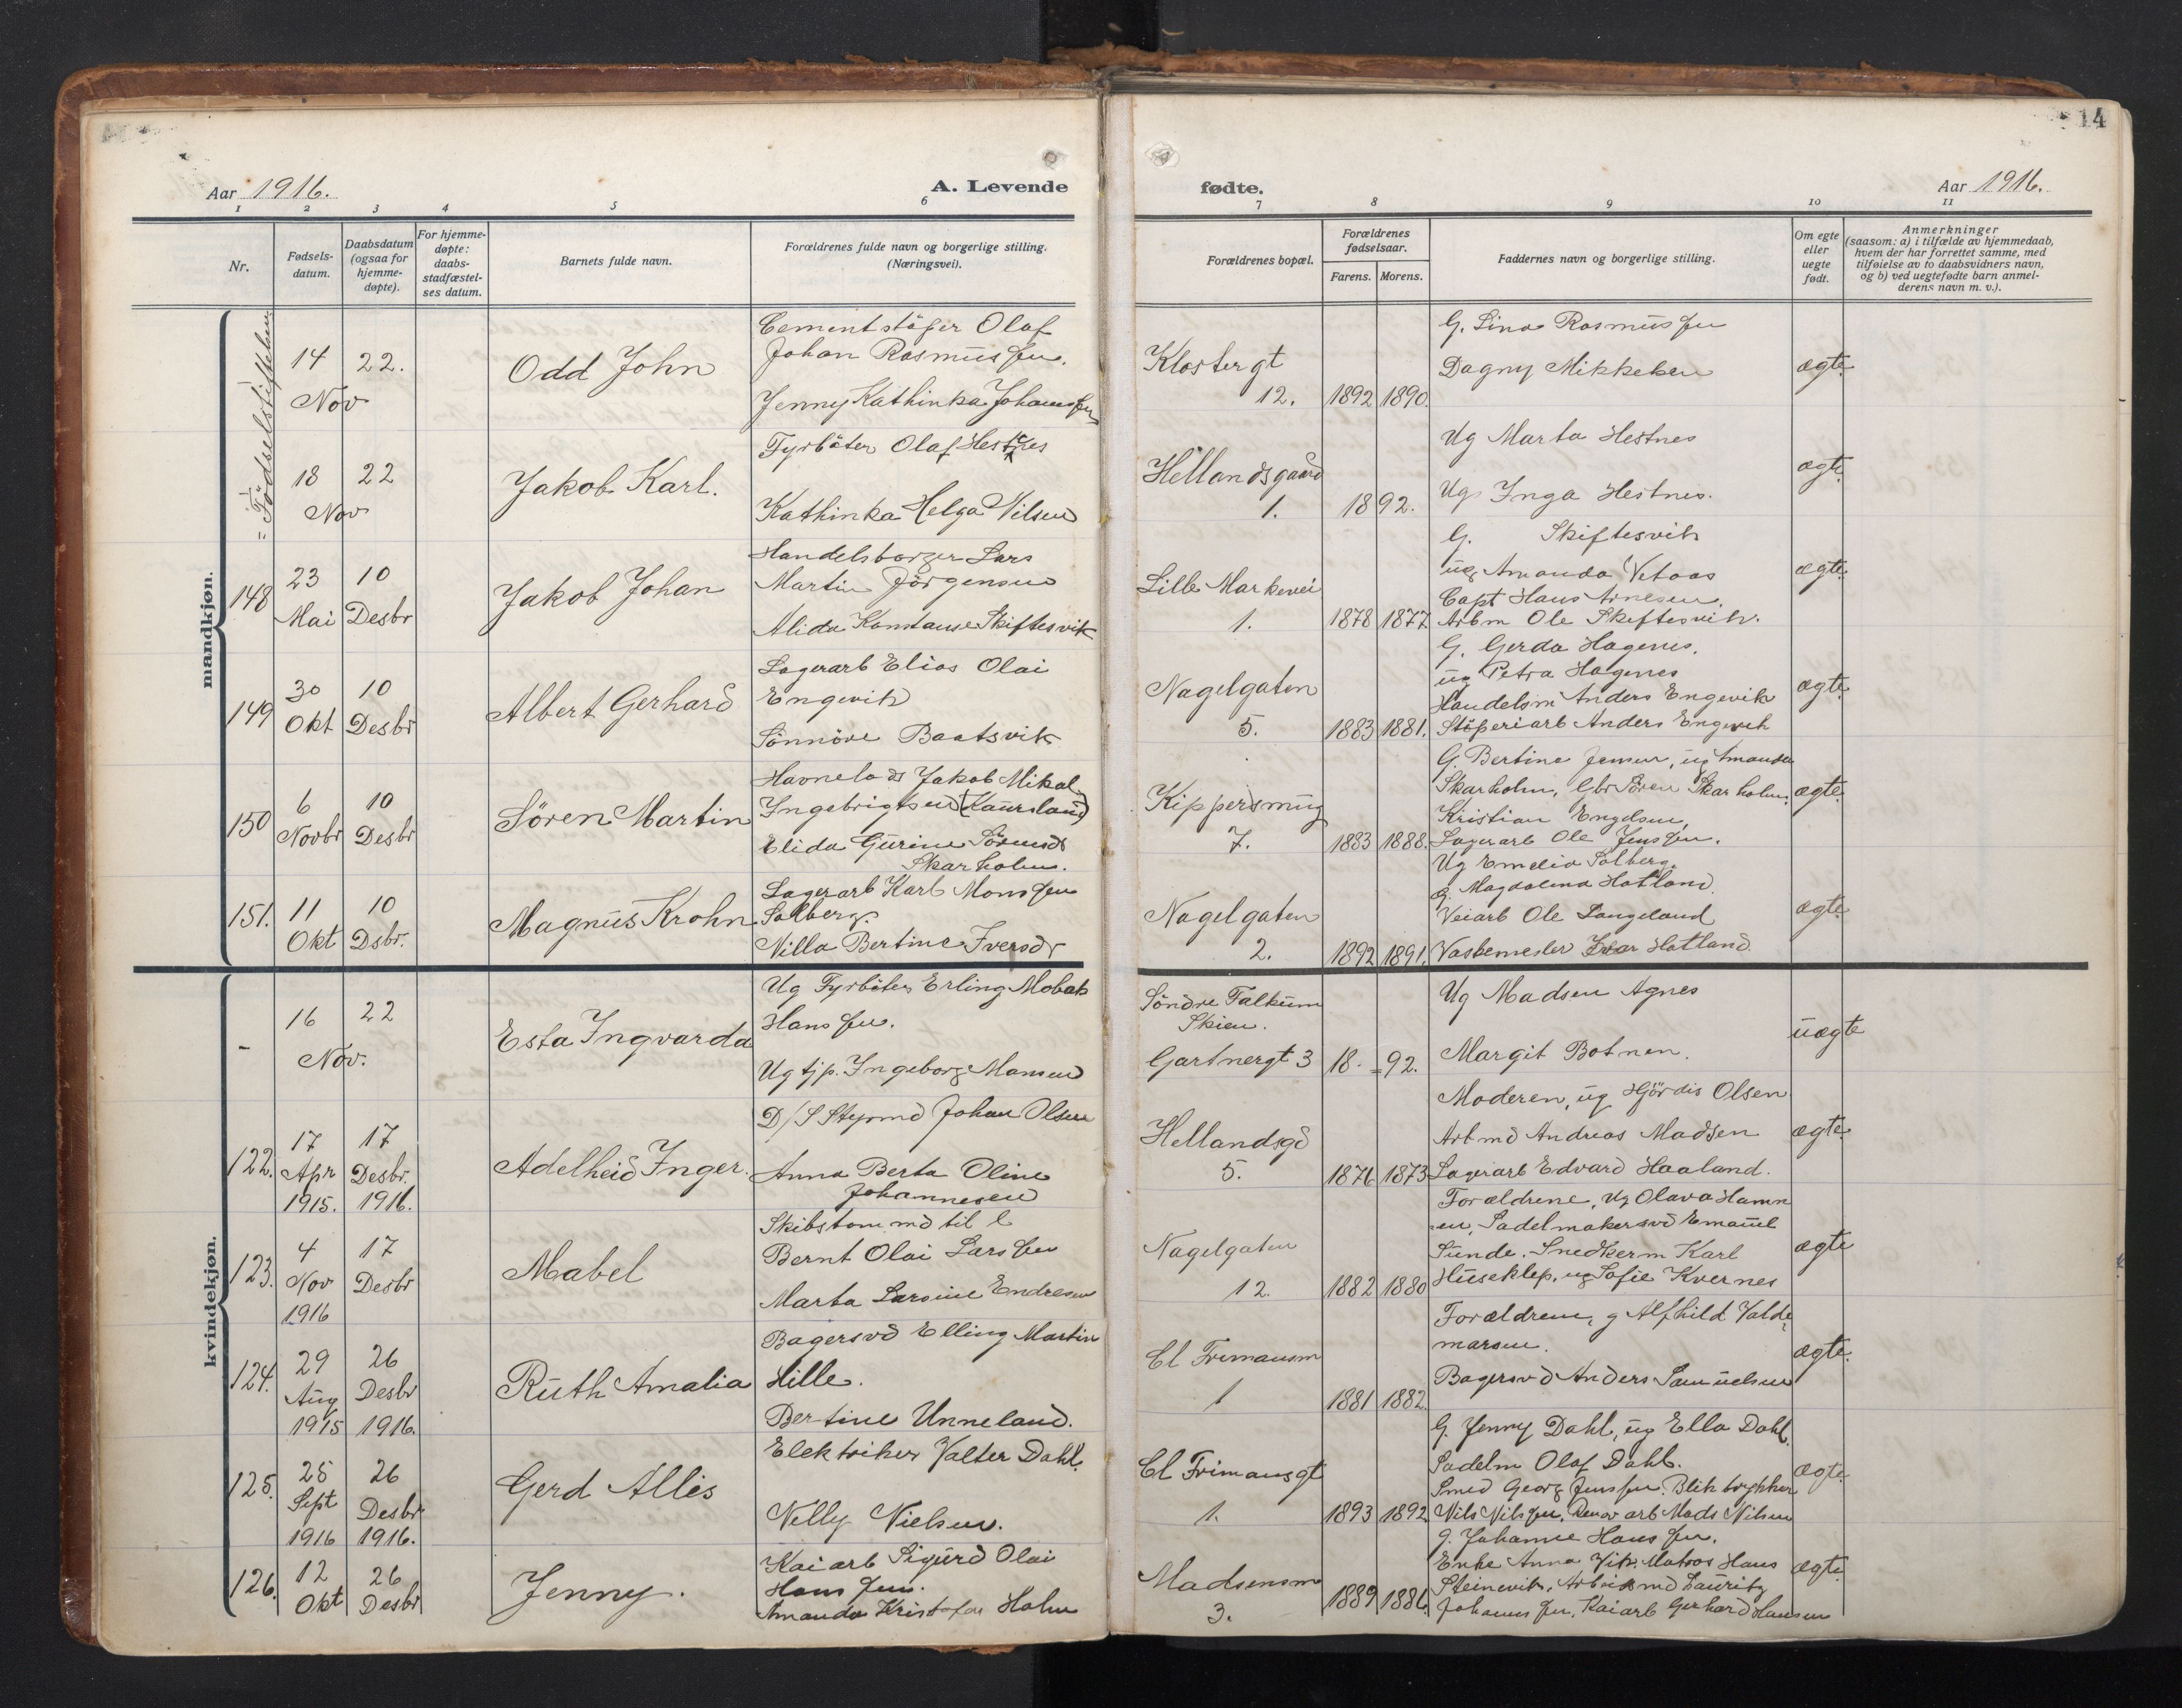 14
Aar 1916.
A. Levende
fødte.
Aar 1916.
1 2 3 4 5 6
7 8 9 10 11
Nr.
Fødsels-
datum.
Daabsdatum
(ogsaa for
hjemme-
døpte).
For hjemme-
døpte:
daabs-
stadfæstel-
ses datum.
Barnets fulde navn.
Forældrenes fulde navn og borgerlige stilling.
(Næringsvei).
Forældrenes bopæl.
Forældrenes
fødselsaar.
Farens. Morens.
Faddernes navn og borgerlige stilling.
Om egte
eller
uegte
født.
Anmerkninger
(saasom: a) i tilfælde av hjemmedaab,
hvem der har forrettet samme, med
tilføielse av to daabsvidners navn,
og b) ved uegtefødte barn anmel-
derens navn m. v.).
mandkjøn.
= Fødselsstiftelsen
14 22.
Nov
Odd John
Cementstøper Olaf
Johan Rasmussen.
Jenny Kathinka Johanssen
Klostergt
12. 1892 1890.
G. Lina Rasmussen
Dagny Mikkelsen
ægte
18 22
Nov
Jakob Karl.
Fyrbøter Olaf Hestnes
Kathinka Helga Nilsen
Hellandsgaard
1. 1892.
Ug Marta Hestnes
Ug Inga Hestnes.
ægte
148 23 10
Mai Desbr
Jakob Johan
Handelsborger Lars
Martin Jörgensen
Alida Konstanse Skiftesvik
Lille Markevei
1. 1878 1877
G. Skiftesvik
ug Amanda Vetaas
Capt Hans Arnesen.
Arbm Ole Skiftesvik.
ægte
149 30 10
Okt Desbr
Albert Gerhard
Lagerarb Elias Olai
Engevik
Sönnöve Baatsvik
Nagelgaten
5. 1883 1881.
G. Gerda Hagenes.
ug Petra Hagenes
Handelsm Anders Engevik
Stöperiarb Anders Engevik
ægte
150 6 10
Novbr Desbr
Søren Martin
Havnelods Jakob Mikal
Ingebrigtsen (Kaursland)
Elida Gurine Sörensdr
Skarholm.
Kippersmug
7. 1883 1888.
G. Bertine Jensen, ug Amanda
Skarholm, Gbr Sören Skarholm,
Kristian Engelsen,
Lagerarb Ole Jenssen.
ægte
151. 11 10
Okt Dsbr.
Magnus Krohn
Lagerarb Karl Monssen
Solberg.
Nilla Bertine Iversdr
Nagelgaten
2. 1892 1891.
Ug Emelia Solberg.
G. Magdalena Hatland.
Veiarb Ole Langeland
Vaskemester Ivar Hatland
ægte
kvindekjøn.
- 16 22
Nov.
Esta Ingvarda
Ug Fyrbøter Erling Mobak
Hanssen.
Ug tjp. Ingeborg Monsen
Söndre Falkum
Skien.
Gartnergt 3 18 - = 92.
Ug Madsen Agnes
Margit Botnen.
uægte
122. 17 17
Apr Desbr.
1915. 1916.
Adelheid Inger.
D/S Styrmd Johan Olsen
Anna Berta Oline
Johannesen
Hellandsgd
5. 1876 1873
Moderen, ug Hjördis Olsen
Arbmd Andreas Madsen
Lagerarb Edvard Haaland.
ægte
123. 4 17
Nov Desbr
1916
Mabel
Skibstømmd til l
Bernt Olai Larssen
Marta Larsine Endresen
Nagelgaten
12. 1882 1880
Forældrene, Ug Olava Hamn
en, Sadelmakersvd Emanuel
Sunde. Snedkerm Karl
Huseklep, ug Sofie Kvernes
ægte
124. 29 26
Aug Desbr
1915 1916.
Ruth Amalia
Bagersvd Elling Martin
Hille.
Bertine Unneland.
Cl Frimansm
1 1881 1882.
Forældrene, g Alfhild Valde
marsen.
Bagersvd Anders Samuelsen
ægte.
125. 25 26
Sept Desbr
1916 1916.
Gerd Allis
Elektriker Valter Dahl.
Nelly Nielsen.
Cl Frimansgt
1. 1893 1892
G. Jenny Dahl, ug Ella Dahl.
Sadelm Olaf Dahl.
Smed Georg Jenssen. Bliktrykker
Nils Nilssen. Renov arb Mads Nilsen
ægte.
126. 12 26
Okt Desbr
Jenny.
Kaiarb Sigurd Olai
Hanssen.
Amanda Kristofa Holm
Madsensm
3. 1889 1886.
g. Johanne Hanssen.
Enke Anna Vik. Matros Hans
Steinevik, Arbeidsmd Lauritz
Johanssen, Kaiarb Gerhard Hansen
ægte